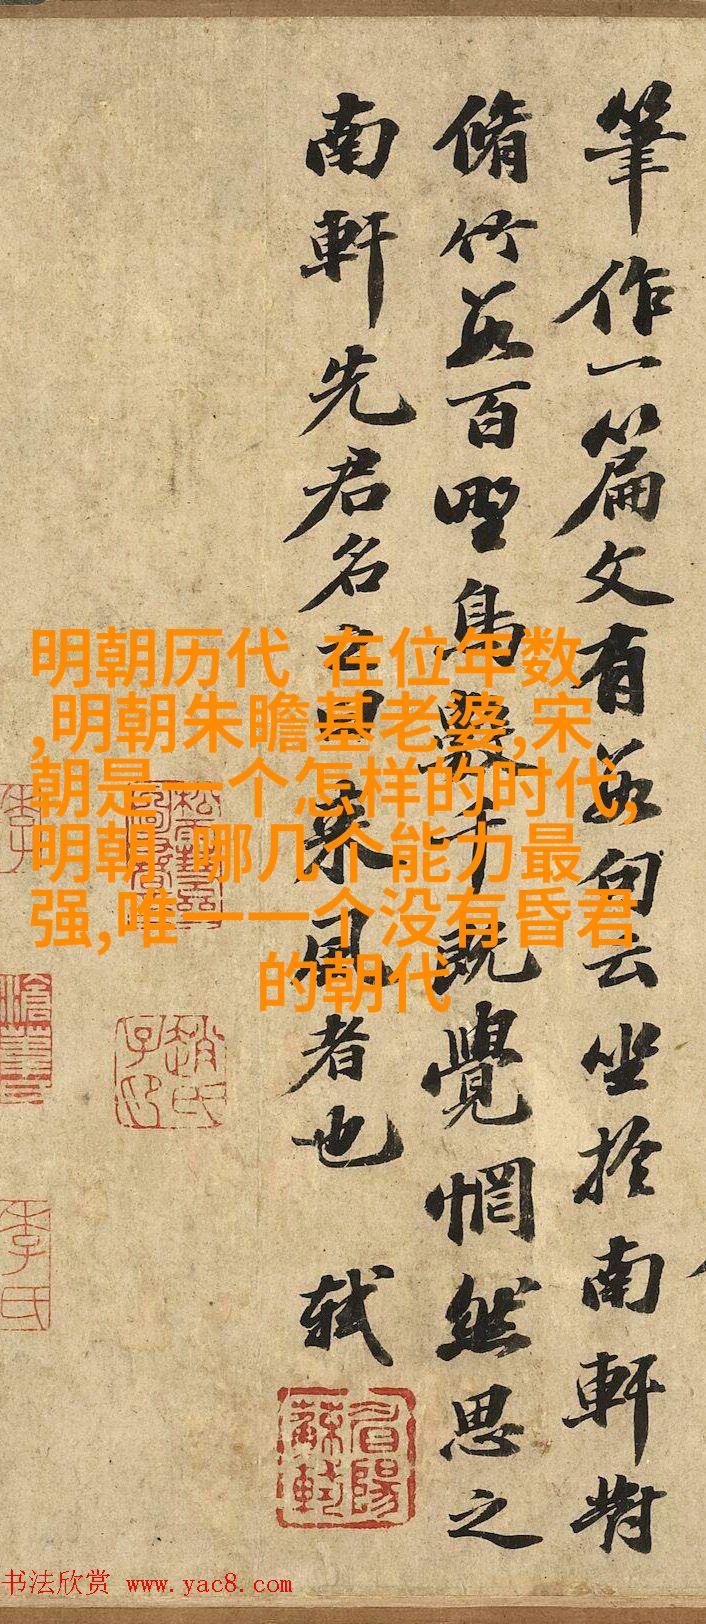 筆作一篇文有數句云坐於南軒對
脩竹數百野鳥數千既覺惘然思之
南軒先君名之曰來風者也
軾
眉陽蘇軾
李氏
明朝历代 在位年数
,明朝朱瞻基老婆,宋
朝是一个怎样的时代,
明朝 哪几个能力最
强,唯一一个没有昏君
的朝代
书法欣赏 www.yac8.com